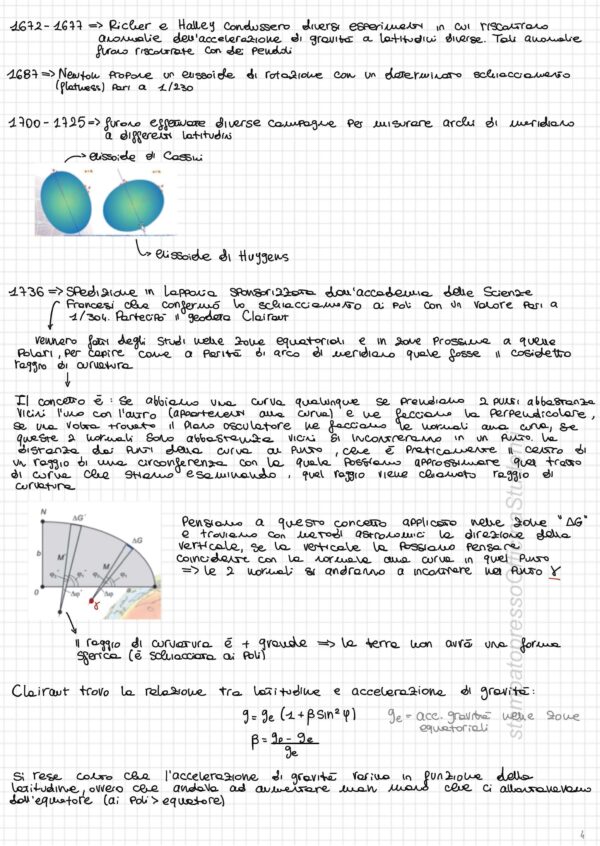 1672-1677 => Richer e Halley condussero diversi esperimenti in cui riscontrano
anomalie dell'accelerazione di gravità a latitudini diverse. Tali anomalie
furono riscontrate con dei pendoli
1687 => Newton propone un elissoide di rotazione con un determinato schiacciamento
(flatness) pari a 1/230
1700-1725 => furono effettuate diverse campagne per misurare archi di meridiano
a differenti latitudini
elissoide di Cassini
elissoide di Huygens
1736 => Spedizione in Lapponia sponsorizzata dall'accademia delle Scienze
Francesi che confermò lo schiacciamento ai poli con un valore pari a
1/304. Partecipò il geodeta Clairaut
Vennero fatti degli studi nelle zone equatoriali e in zone prossime a quelle
Polari, per capire come a parità di arco di meridiano quale fosse il cosidetto
raggio di curvatura
Il concetto è: Se abbiamo una curva qualunque se prendiamo 2 punti abbastanza
vicini l'uno con l'altro (appartenenti alla curva) e ne facciamo la perpendicolare,
se una volta trovato il piano osculatore ne facciamo le normali alla curva, se
queste 2 normali sono abbastanza vicini si incontreranno in un punto. La
distanza dai punti della curva al punto, che è praticamente il centro di
un raggio di una circonferenza con la quale possiamo approssimare quel tratto
di curva che stiamo esaminando, quel raggio viene chiamato raggio di
curvatura
N
ΔG'
ΔG
M'
M
b
φ₁'
φ₁
O
Δφ'
Δφ
a
γ
Pensiamo a questo concetto applicato nelle zone "ΔG"
e troviamo con metodi astronomici la direzione della
verticale, se la verticale la possiamo pensare
coincidente con la normale alla curva in quel punto
=> le 2 normali si andranno a incontrare nel punto γ
Il raggio di curvatura è + grande => la terra non avrà una forma
sferica (è schiacciata ai poli)
Clairaut trovò la relazione tra latitudine e accelerazione di gravità:
g = gₑ (1 + β sin² φ) gₑ = acc. gravità nelle zone
equatoriali
β = gₚ - gₑ
gₑ
Si rese conto che l'accelerazione di gravità varino in funzione della
latitudine, ovvero che andava ad aumentare man mano che ci allontanavamo
dall'equatore (ai poli > equatore)
4